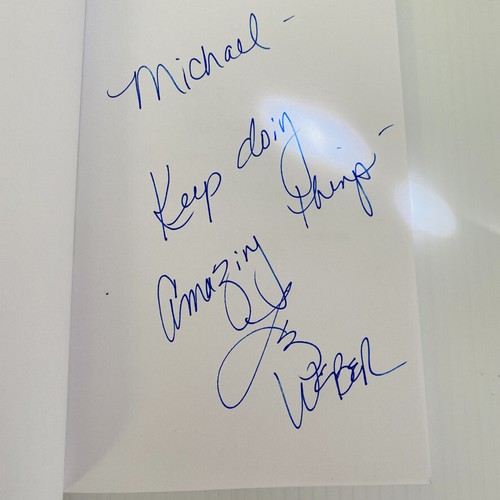 Michael -
Keep doing
Amazing things -
WEBER